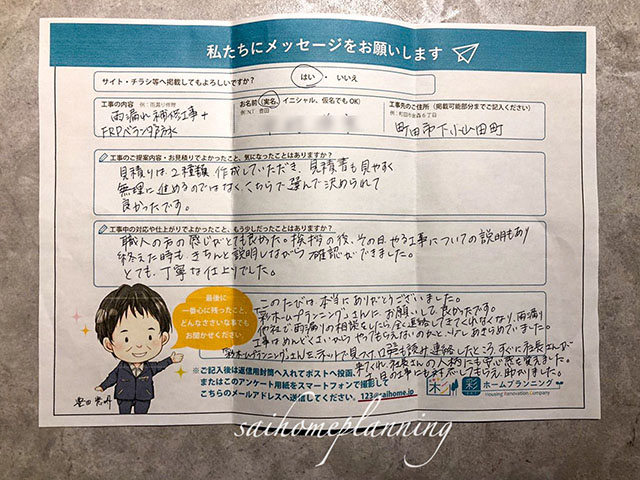 私たちにメッセージをお願いします
サイト・チラシ等へ掲載してもよろしいですか？ はい ・ いいえ
工事の内容
例：雨漏り修理
雨漏れ補修工事+
FRPベランダ防水
お名前（実名、イニシャル、仮名でもOK）
工事先のご住所（掲載可能部分までご記入ください）
例：町田市金森6丁目
町田市下小山田町
工事のご提案内容・お見積りでよかったこと、気になったことはありますか？
見積りは2種類作成していただき、見積書も見やすく
無理に進めるのではなく、こちらで選んで決められて
良かったです。
工事中の対応や仕上がりでよかったこと、もう少しだったことはありますか？
職人の方の感じがとても良かた。挨拶の後、その日やる工事についての説明もあり
終えた時もきちんと説明しながら確認ができました。
とても丁寧な仕上りでした。
最後に
一番心に残ったこと、
どんなささいな事でも
お聞かせください
このたびは本当にありがとうございました。
「彩ホームプランニング」さんにお願いして良かったです。
他社で雨漏りの相談をしたら全く連絡してきてくれなくなり、雨漏り
工事はめんどくさいからやってもらえないのかなと少しあきらめていました。
「彩ホームプランニング」さんをネットで見つけ、口コミも読み連絡したところ、すぐに社長さんが
来てくれ、社長さんの人柄にも安心感を覚えました。
工事にも対応してもらえ、助かりました。
※ご記入後は返信用封筒へ入れてポストへ投函、
またはこのアンケート用紙をスマートフォンで撮影して
こちらのメールアドレスへ送信ください。 123@saihome.jp
彩 ホームプランニング
Housing Renovation Company
saihomeplanning